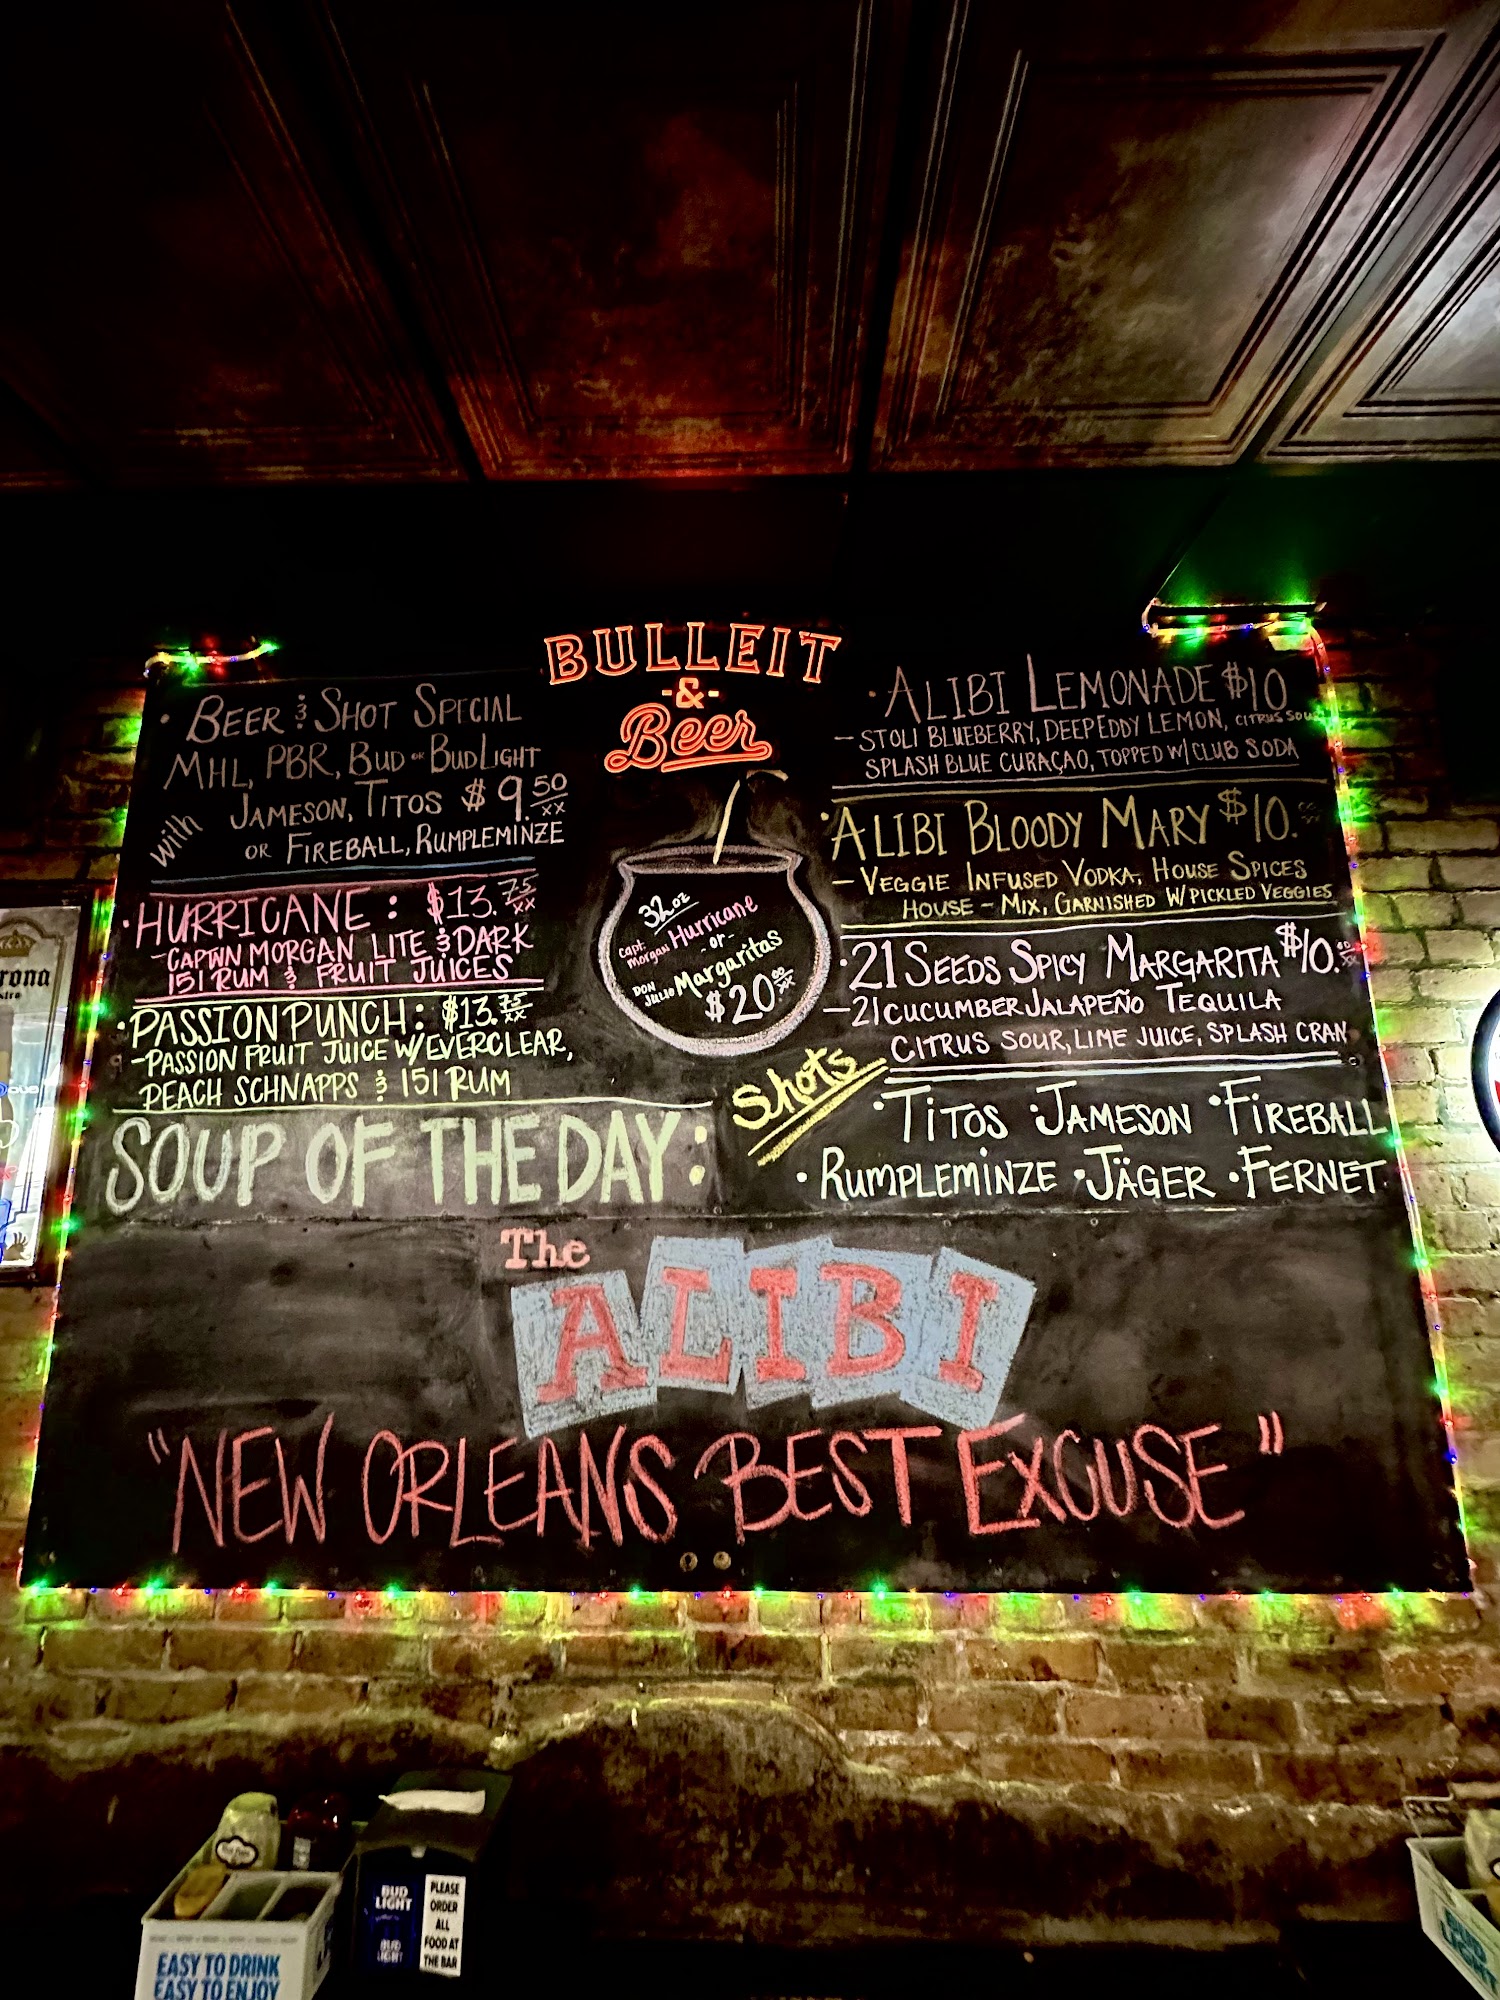 BULLEIT
-&-
Beer
· BEER & SHOT SPECIAL
MHL, PBR, BUD OR BUD LIGHT
with JAMESON, TITOS $9.50 xx
OR FIREBALL, RUMPLEMINZE
· HURRICANE: $13.75 xx
- CAPTWN MORGAN LITE & DARK
151 RUM & FRUIT JUICES
· PASSION PUNCH: $13.75 xx
- PASSION FRUIT JUICE W/ EVERCLEAR,
PEACH SCHNAPPS & 151 RUM
SOUP OF THE DAY:
32oz
Capt. Morgan Hurricane
-or-
DON JULIO Margaritas
$20.00 xx
· ALIBI LEMONADE $10
- STOLI BLUEBERRY, DEEP EDDY LEMON, CITRUS SOUR
SPLASH BLUE CURAÇAO, TOPPED W/ CLUB SODA
· ALIBI BLOODY MARY $10.
- VEGGIE INFUSED VODKA, HOUSE SPICES
HOUSE-MIX, GARNISHED W/ PICKLED VEGGIES
· 21 SEEDS SPICY MARGARITA $10.
- 21 CUCUMBER JALAPEÑO TEQUILA
CITRUS SOUR, LIME JUICE, SPLASH CRAN
Shots
· TITOS · JAMESON · FIREBALL
· RUMPLEMINZE · JÄGER · FERNET
The
ALIBI
"NEW ORLEANS BEST EXCUSE"
rona
BUD
LIGHT
BUD
LIGHT
PLEASE
ORDER
ALL
FOOD AT
THE BAR
EASY TO DRINK
EASY TO ENJOY